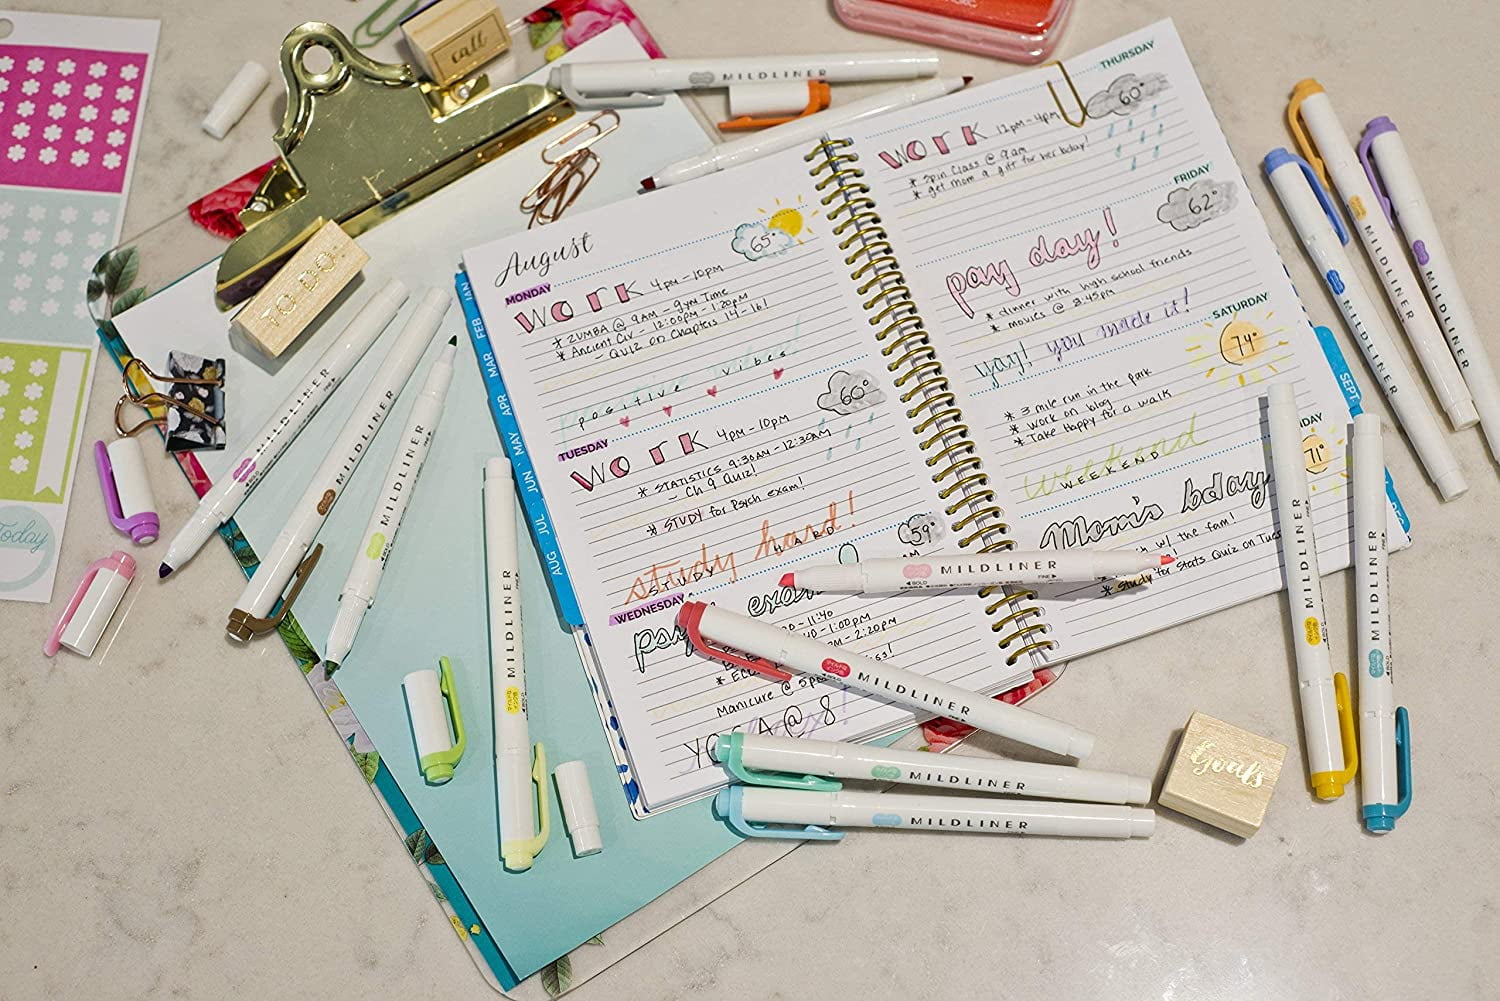 call
TO DO:
Today
MILDLINER
August
JAN
FEB
MAR
APR
MAY
JUN
JUL
AUG
MONDAY
WORK 4pm - 10pm
65°
* ZUMBA @ 9AM - gym Time
* Ancient Civ - 12:00pm - 1:20pm
- Quiz on Chapters 14 - 16!
positive vibes
TUESDAY
WORK 4pm - 10pm
60°
* STATISTICS 9:30AM - 12:30AM
- Ch 9 Quiz!
* STUDY for Psych exam!
study hard!
STUDY HARD
WEDNESDAY
59°
- 11:40
- 1:00pm
- 2:20pm
Manicure @ 5pm
YOGA @ 8
THURSDAY
WORK 12pm - 4pm
60°
* Spin Class @ 9am
* get mom a gift for her bday!
FRIDAY
62°
pay day!
* dinner with high school friends
* movies @ 8:45pm
yay! you made it!
SATURDAY
74°
* 3 mile run in the park
* work on blog
* Take Happy for a walk
weekend
WEEKEND
71°
Mom's bday
w/ the fam!
* Study for Stats Quiz on Tues
SEPT
DEC
MILDLINER
MILDLINER
MILDLINER
MILDLINER
MILDLINER
BOLD
FINE
MILDLINER
MILDLINER
MILDLINER
MILDLINER
MILDLINER
MILDLINER
MILDLINER
MILDLINER
Goals